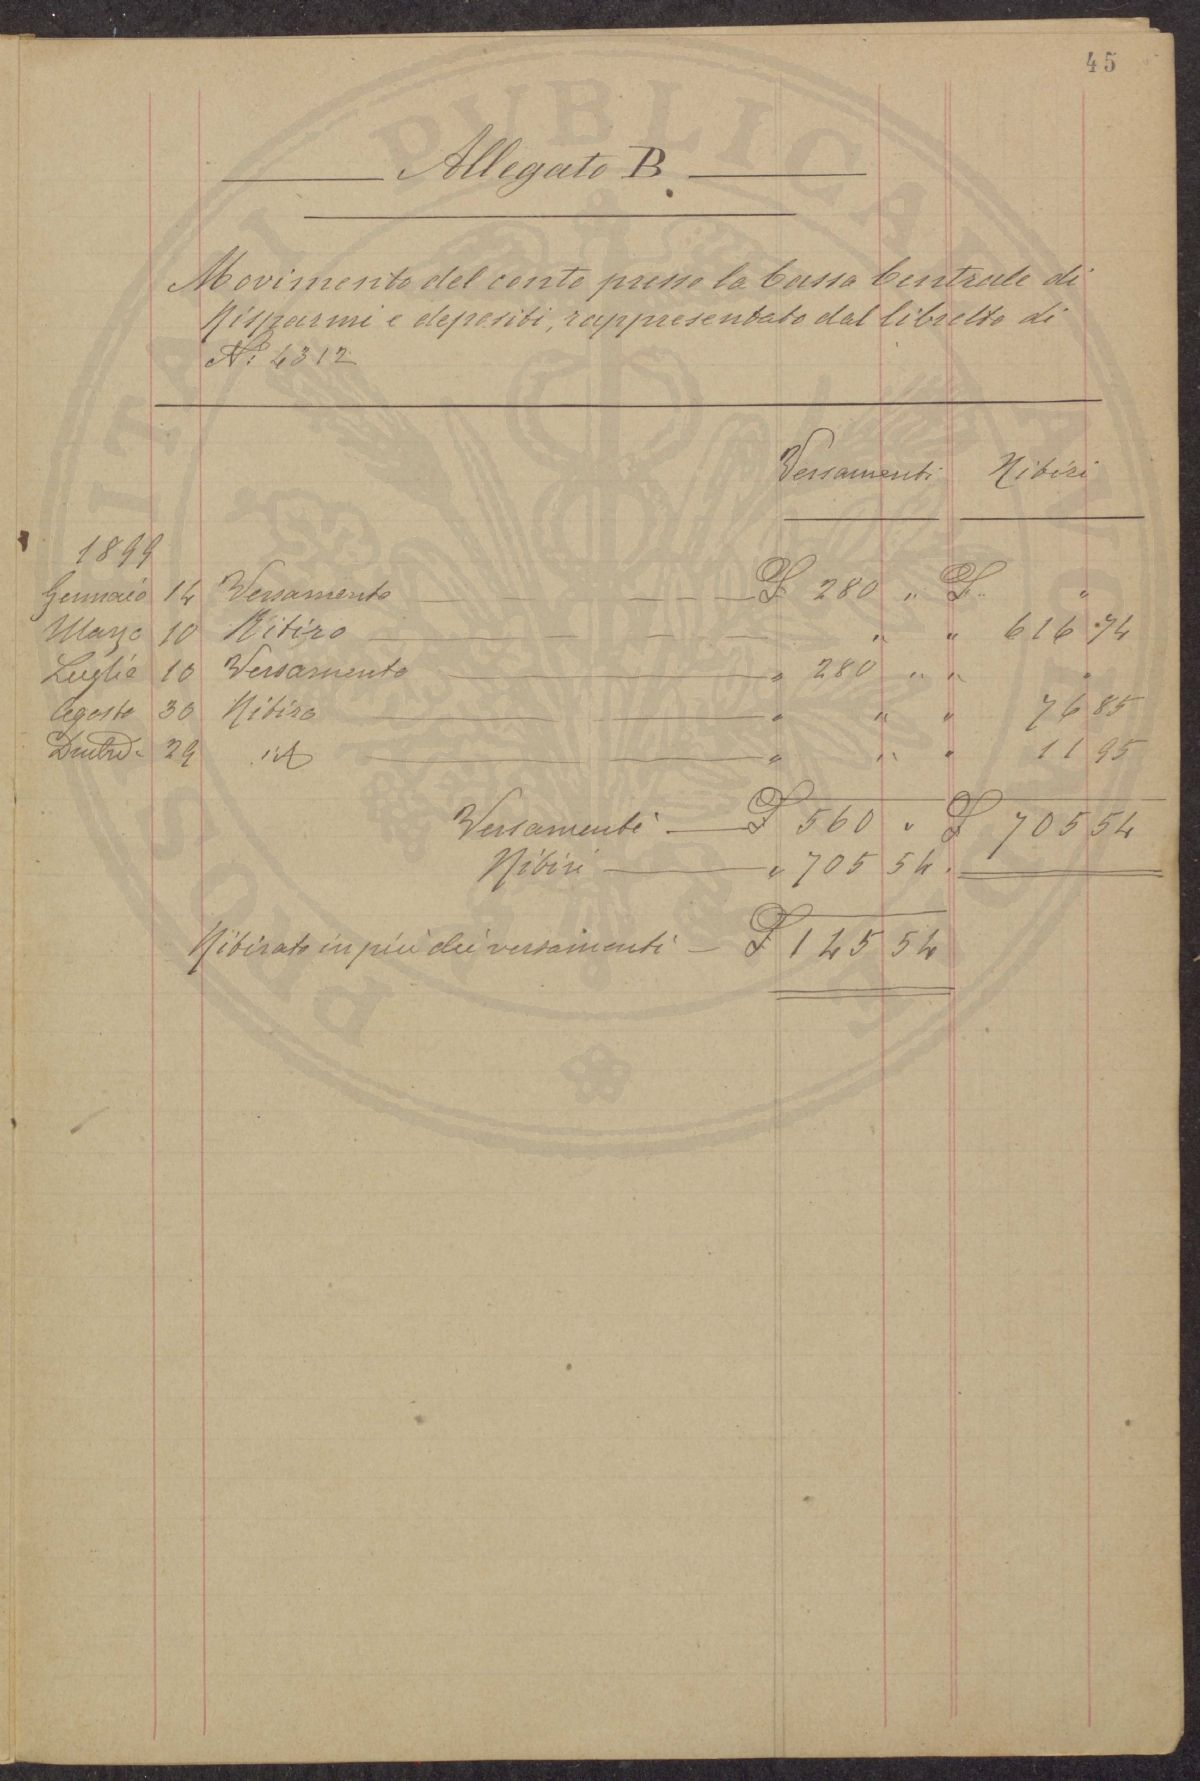 45
Allegato B
Movimento del conto presso la Cassa Centrale di
Risparmi e depositi, rappresentato dal libretto di
N: 4312
Versamenti Ritiri
1899
Gennaio 14 Versamento £ 280 " £ "
Marzo 10 Ritiro " " 616 74
Luglio 10 Versamento " 280 " " "
Agosto 30 Ritiro " " " 76 85
29 id " " " 11 95
Versamenti £ 560 " £ 705 54
Ritiri " 705 54
Ritirato in più dei versamenti £ 145 54